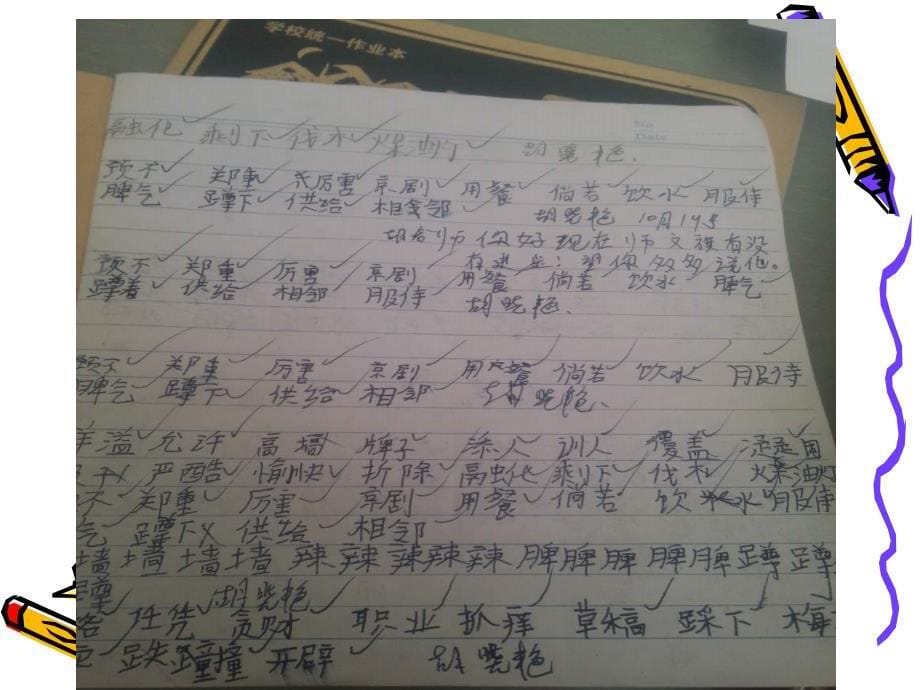 学校统一作业本
No
Date
融化 剩下 伐木 煤油灯 胡晓艳.
预不 郑重 厉害 京剧 用餐 倘若 饮水 服侍
脾气 蹲下 供给 相邻 胡晓艳 10月19号
胡老师你好现在师文族有没
有进步！望你多多说他。
预不 郑重 厉害 京剧 用餐 倘若 饮水 脾气
蹲着 供给 相邻 服侍 胡晓艳.
预不 郑重 厉害 京剧 用餐 倘若 饮水 服侍
脾气 蹲下 供给 相邻 胡晓艳.
洋溢 允许 高墙 牌子 杀人 训人 覆盖
严酷 愉快 拆除 融化 剩下 伐木 煤油灯
不 郑重 厉害 京剧 用餐 倘若 饮水 服侍
气 蹲下 供给 相邻
墙 墙 墙 墙 辣 辣 辣 辣 辣 脾 脾 脾 脾 脾 蹲 蹲
蹲 胡晓艳
任凭 贪财 职业 抓痒 草稿 踩下 梅
跌撞撞 开辟 胡晓艳